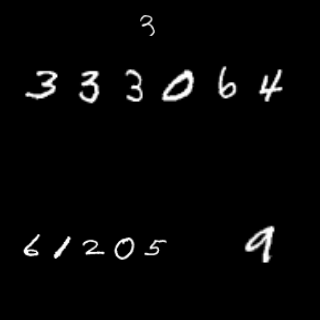 3
333064
61205 9